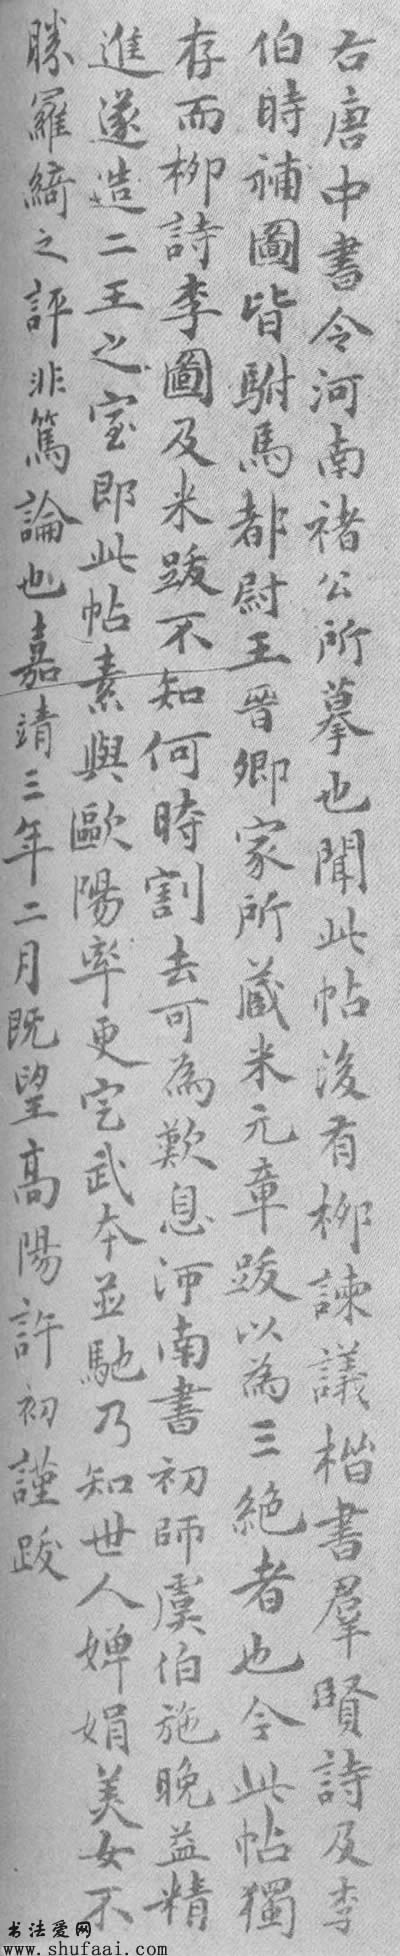 右唐中書令河南褚公所摹也聞此帖後有柳諫議楷書羣賢詩及李
伯時補圖皆駙馬都尉王晉卿家所蔵米元章跋以為三絶者也今此帖獨
存而柳詩李圖及米跋不知何時割去可為歎息河南書初師虞伯施晚益精
進遂造二王之室即此帖素與歐陽率更定武本並馳乃知世人嬋娟美女不
勝羅綺之評非篤論也嘉靖三年二月既望高陽許初謹跋
书法爱网
www.shufaai.com